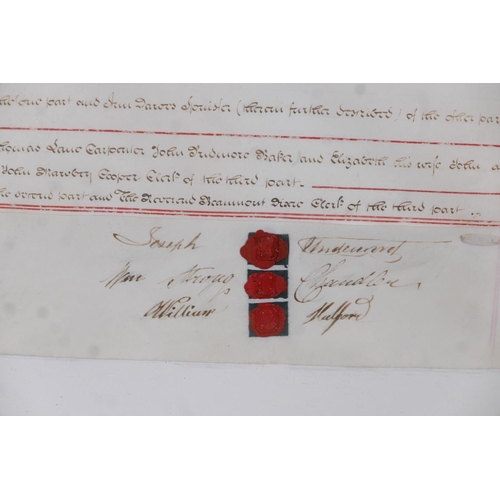 the one part and Ann Darers Spinster (therein further described) of the other par
Thomas Lane Carpenter John Pridmore Baker and Elizabeth his wife John
John Marwbey Cooper Clerk of the third part.
the second part and The Reverend Beaumont Dixie Clerk of the third part
Joseph Underwood
Wm Strong Chandler
William Mulford